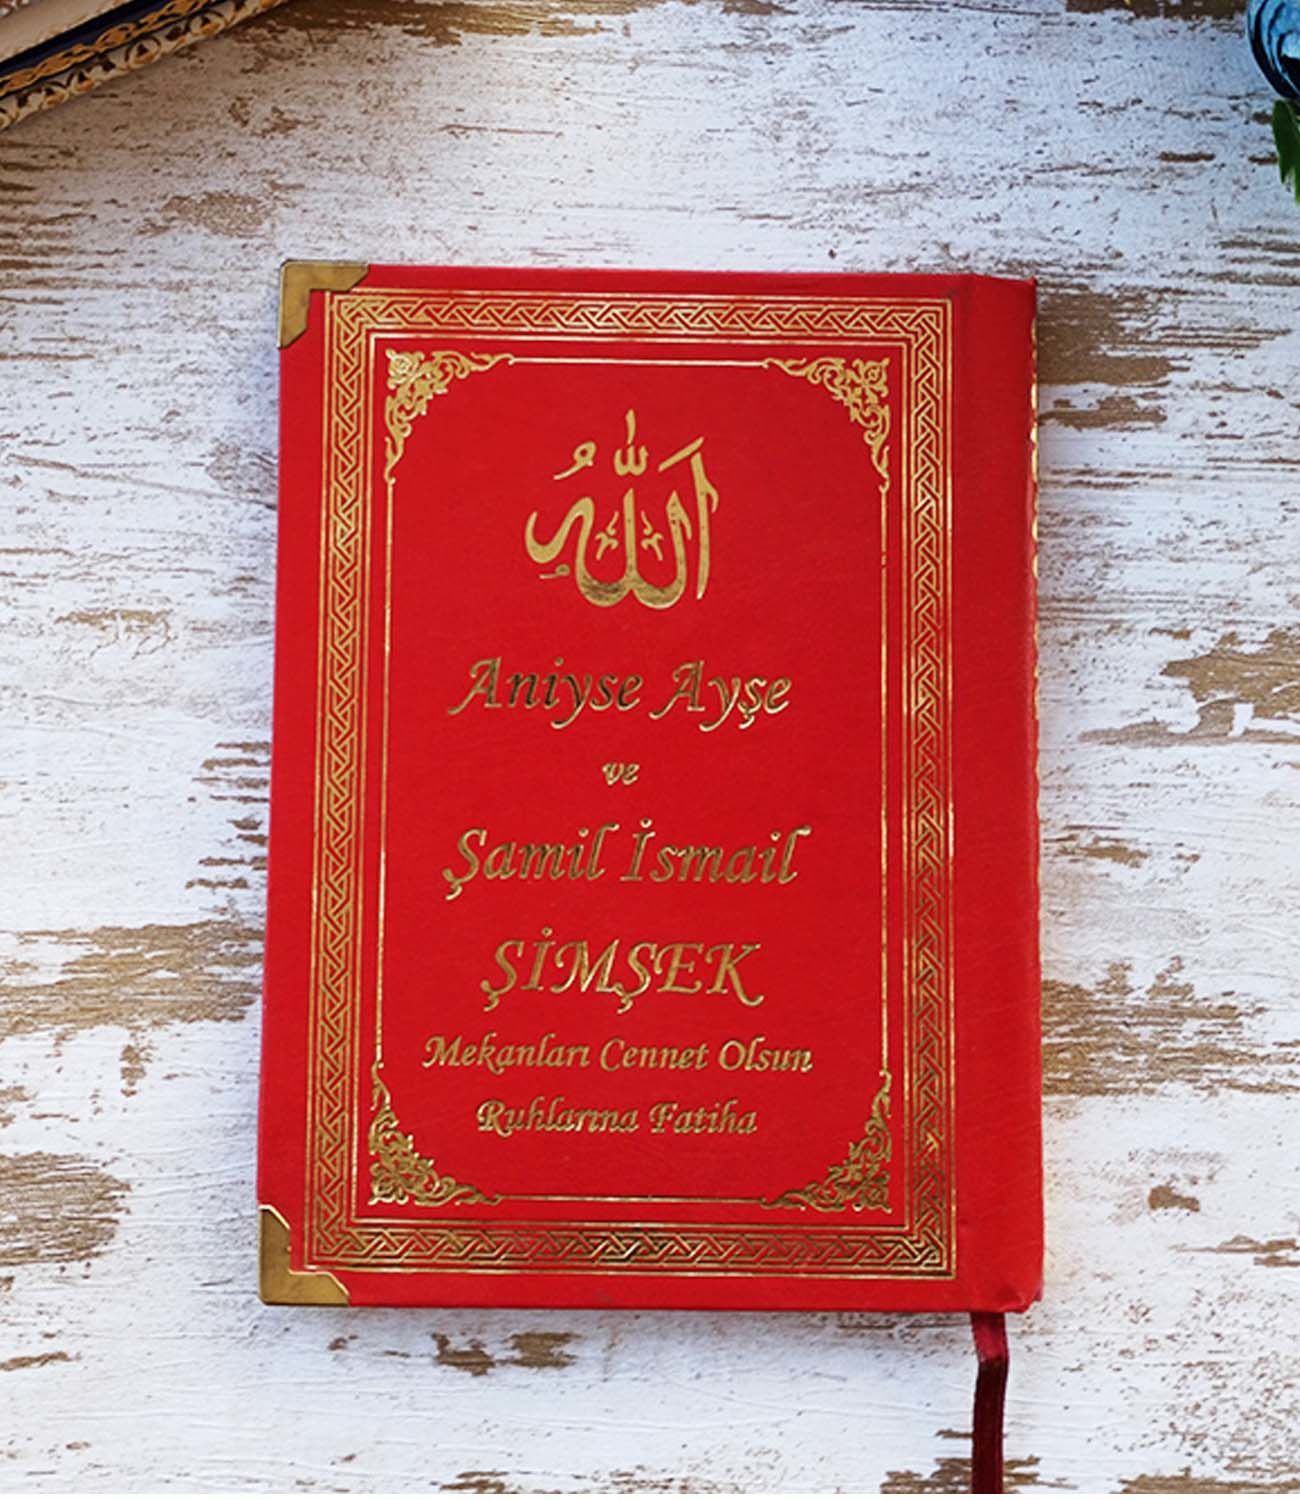 اللهُ
Aniyse Ayşe
ve
Şamil İsmail
ŞİMŞEK
Mekanları Cennet Olsun
Ruhlarına Fatiha